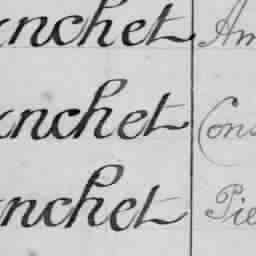 anchet Am
anchet Cons
anchet Pie